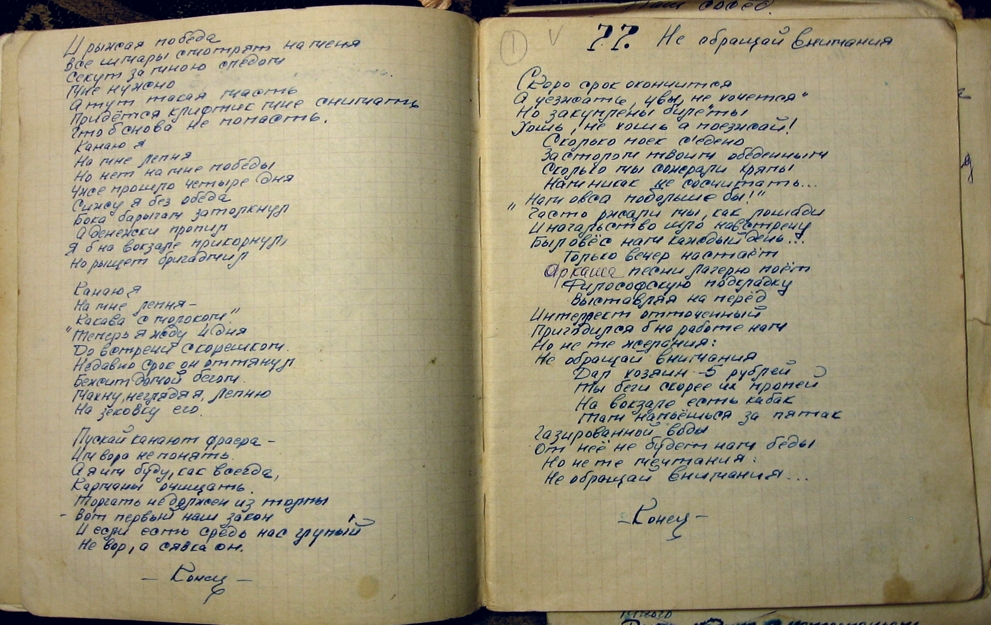 И рыжая победа
Все шмары смотрят на меня
Секут за мною следом
Мне нужно
А тут такая масть
Придётся клифтик мне снимать
Чтоб снова не попасть.
Канаю я
На мне лепня
Но нет на мне победы
Уже прошло четыре дня
Сижу я без обеда
Бока барыгам затолкнул
А денежки пропил
Я б на вокзале прикорнул
Но рыщет бригадмил
Канаю я
На мне лепня –
Какава с молоком"
"Теперь я жду
До встречи с корешком.
Недавно срок он оттянул
Бежит домой бегом.
Махну, не глядя я, лепню
На зековку его.
Пускай канают фраера –
Им вора не понять.
А я им буду, как всегда,
Карманы очищать.
Моргать не должен из толпы
- Вот первый наш закон
И если есть средь нас глупый
Не вор, а сявка он.
– Конец –
1 V 77. Не обращай внимания
Скоро срок окончится
А уезжать, увы, не хочется"
Но закуплены билеты
Хошь, не хошь а поезжай!
Сколько моек съедено
За столом твоим обеденным
Сколько мы сожрали
Нам никак не сосчитать...
"Нам овса побольше бы!"
Часто ржали мы, как лошади
И начальство шло навстречу
Был овёс нам каждый день...
Только вечер настаёт
Аркаша песни лагерю поёт
Философскую подкладку
Выставляя на перёд
Интеллект отточенный
Пригодился б на работе нам
Но не те желания:
Не обращай внимания
Дал хозяин –5 рублей
Ты беги скорее их пропей
На вокзале есть кабак
Там напоёшься за пятак
Газированной воды
От неё не будет нам беды
Но не те мечтания:
Не обращай внимания...
– Конец –